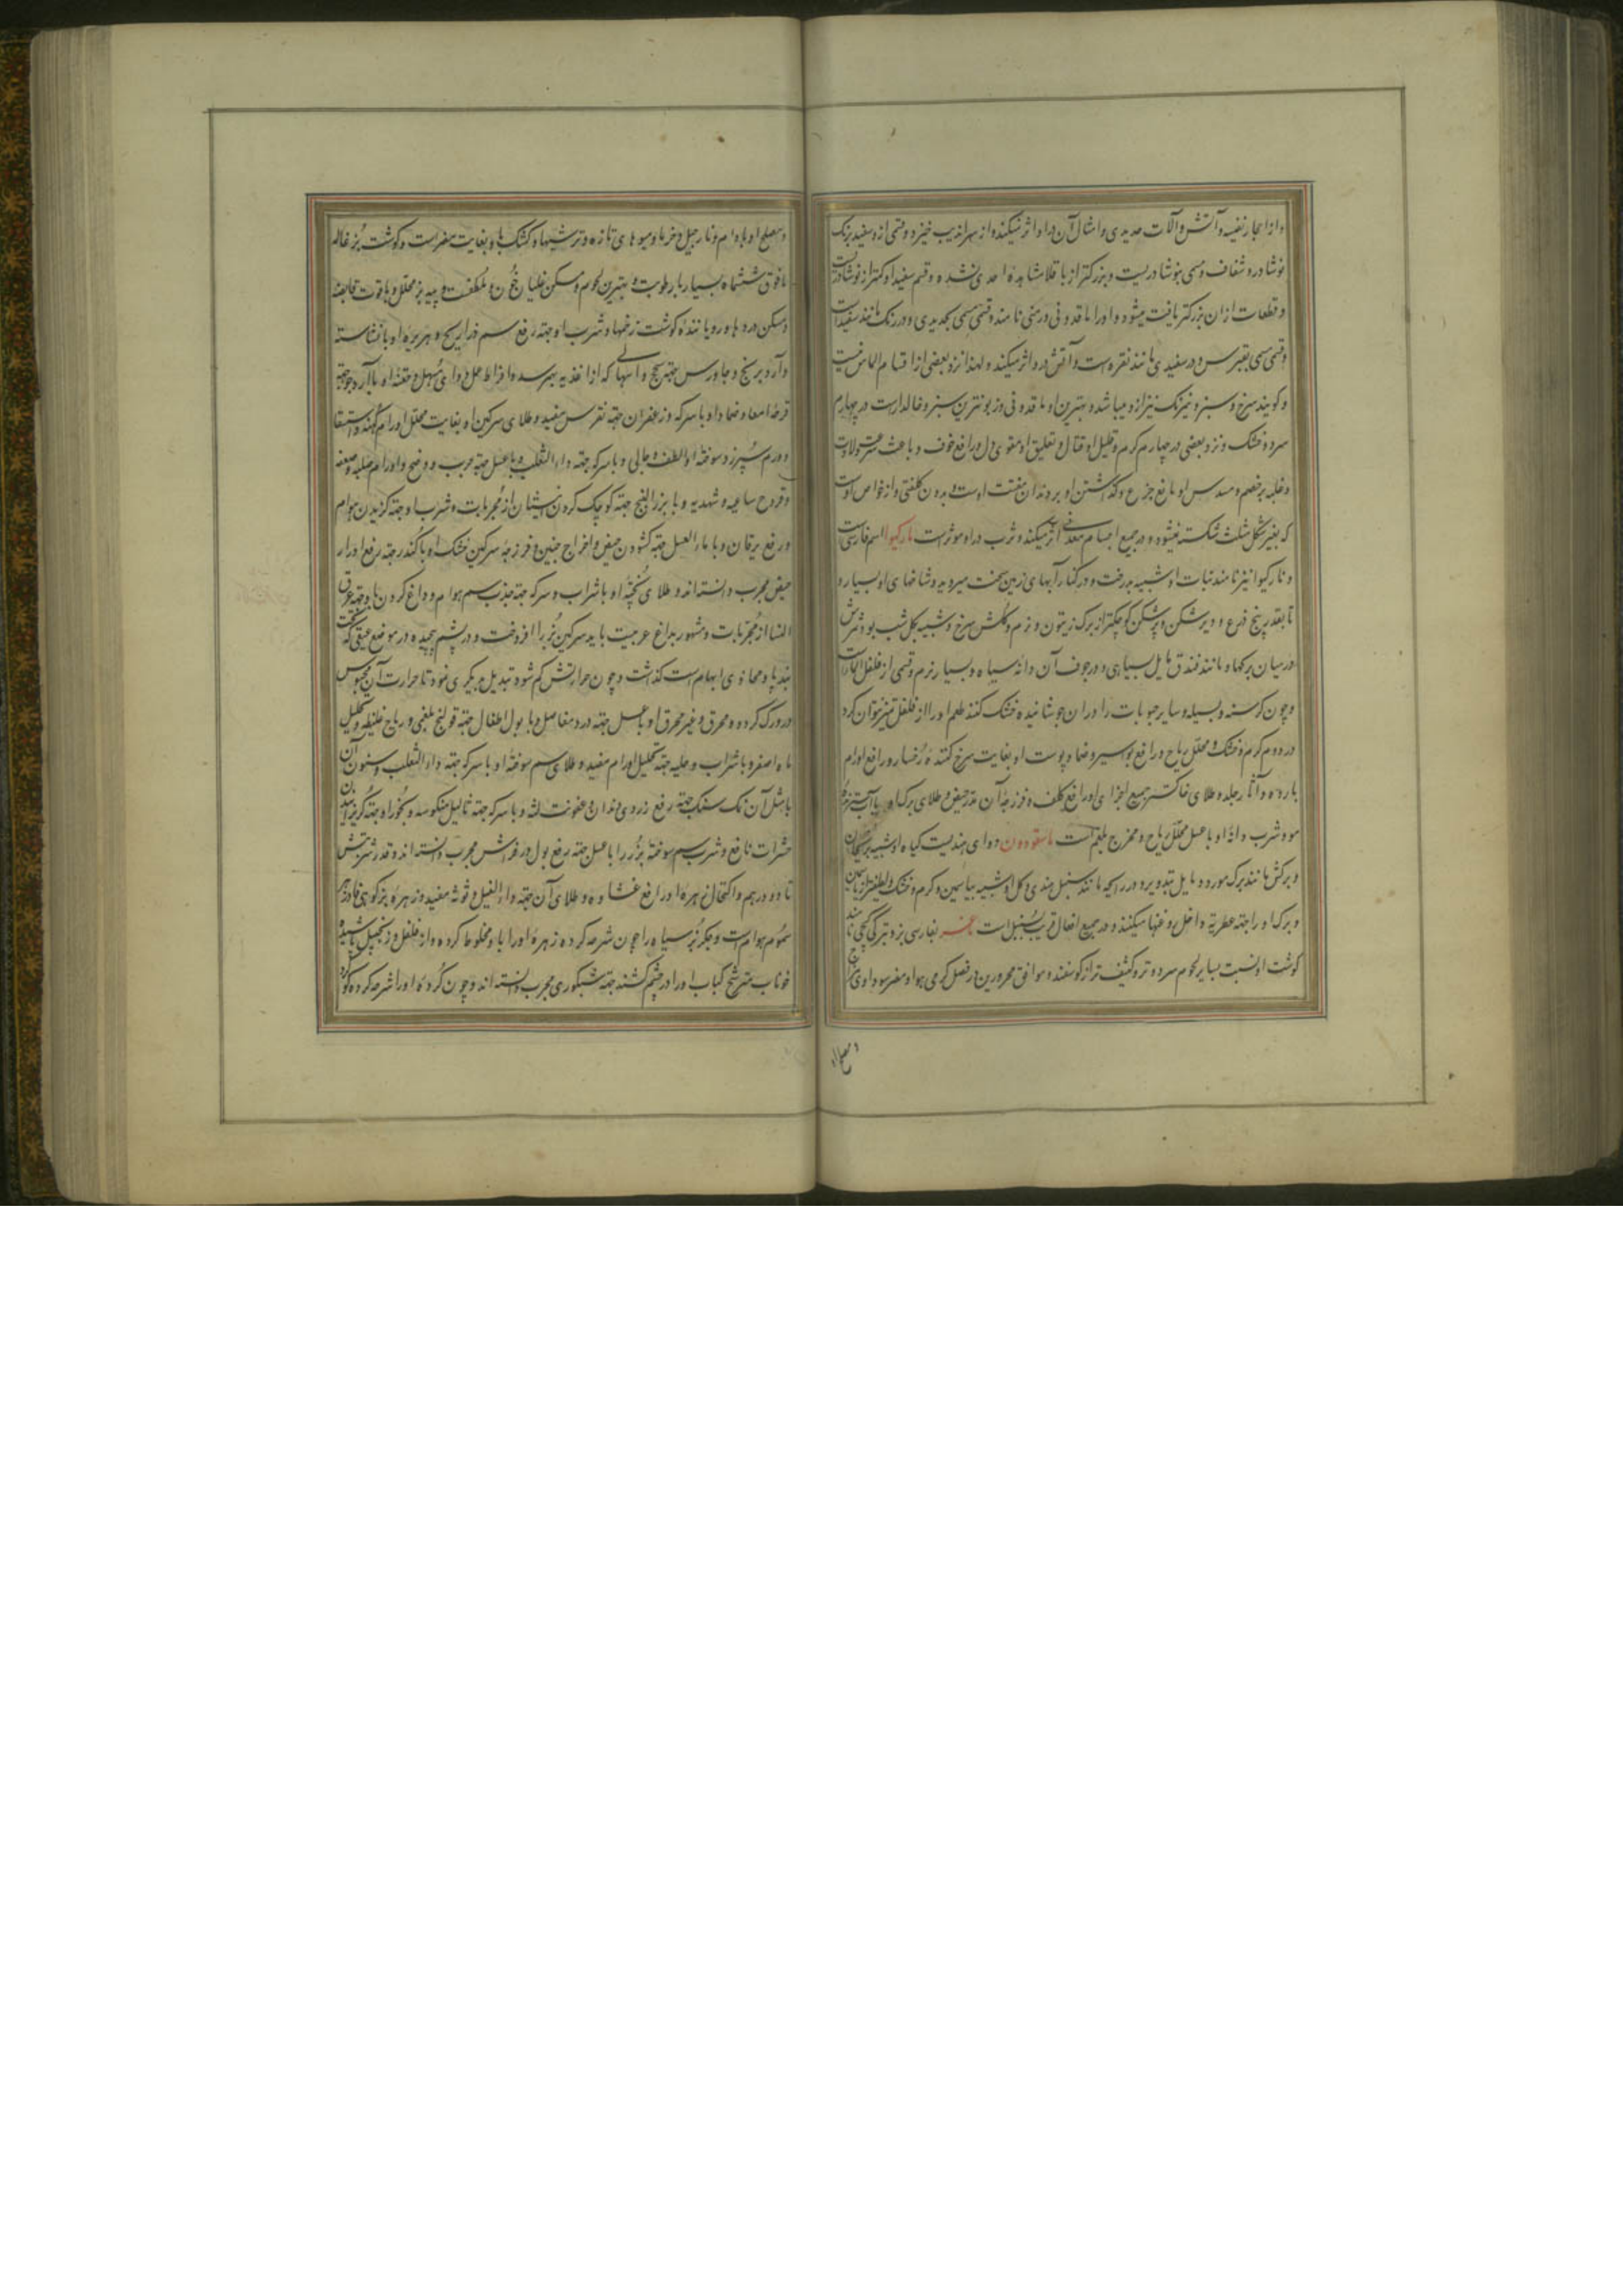 و از احجار نفیسه و آتش و آلات حدیدی و امثال آن در او اثر نمیکند و از سراندیب خیزد و قسمی ازو سفید برنگ
نوشادر و شفاف و مسمی بنوشادریست و بزرکتر از باقلا مشاهده احدی نشده و قسم سفید او کمتر از نوشادریست
و قطعات ازان بزرکتر یافت میشود و او را ماقدونی و رمنی نامند و قسمی مسمی بحدیدی و در رنک مانند سفیداب
و قسمی مسمی بقبرسی در سفیدی مانند نقره است و آتش در او اثر میکند و لهذا نزد بعضی از اقسام الماس نیست
و کویند سرخ و سبز و نیرنک نیز ازو میباشد و بهترین او ماقدونی و زبونترین سبز و خالدارست در چهارم
سرد و خشک و نزد بعضی در چهارم کرم و قلیل او قتال و تعلیق او مقوی دل و رافع خوف و باعث عسر ولادت
و غلبه بر خصم و مسدس او مانع جزع و کذاشتن او بر دندان مفتت اوست بدون کلفتی و از خواص اوست
که بغیر شکل مثلث شکسته نمیشود و در جمیع اجسام معدنی اثر میکند و شرب در او موثر است مارکیوا اسم فارسی است
و نارکیوا نیز نامند نبات او شبیه بدرخت و در کنار آبهای زمین سخت میروید و شاخهای او بسیار و
تا بقدر پنج ذرع و دیر شکن و پرشکن کوچکتر از برک زیتون و نرم و کلش سرخ و شبیه بکل شب بو و ثمرش
در میان برکها و مانند فندق مایل بسیاهی و در جوف آن دانه سیاه و بسیار نرم و قسمی از فلفل الماست
و چون کرسنه و بسیله و سایر حبوبات را دران جوشانیده خشک کنند طعم او را از فلفل تمیز نتوان کرد
در دوم کرم و خشک و محلل ریاح و رافع بواسیر و ضماد پوست او بغایت سرخ کننده رخسار و رافع اورام
بارده و آثار جلد و طلای خاکستر جمیع اجزای او رافع کلف و فرزجه آن مدر حیض و طلای برک او با آب
مو و شرب دانه او با عسل محلل ریاح و مخرج بلغم است ماسقودون دوای هندیست کیاه او شبیه
و برکش مانند برک مورد و مایل بتدویر و در رایحه مانند سنبل هندی و کل او شبیه بیاسمین و کرم و خشک و لطیفتر از یاسمین
و برک او را جهة عطریة داخل روغنها میکنند و در جمیع افعال قریب بسنبل است ماعز بفارسی بز و بترکی کیچی نامند
کوشت او نسبت بسایر لحوم سرد و تر و کثیفتر از کوسفند و موافق محرورین در فصل کرمی هوا و مضر سوداوی
و مصلح
و مصلح او بادام و نارجیل و خرما و میوهای تازه و ترشیها و کشک با و بغایت مضر است و کوشت بزغاله
مافوق ششماه بسیار با رطوبت و بهترین لحوم و مسکن غلیان خون و ملطفست و پیه بز محلل و با قوت قابضه
و مسکن دردها و رویاننده کوشت زخمها و شرب او جهة رفع سم ذراریح و هریره او با نشاسته
و آرد برنج و جاورس جهة سحج و اسهالی که از اغذیه بهمرسد و افراط عمل دوای مسهل و حقنه او با آرد جو جهة
قرحه امعا و ضماد او با سرکه و زعفران جهة نقرس مفید و طلای سرکین او بغایت محلل اورام کهنه و استسقا
و ورم سپرز و سوخته او الطف و جالی و با سرکه جهة داءالثعلب و با عسل جهة جرب و وضح و اورام صلبه و سعفه
و قروح ساعیه و شهدیه و با بزرالبنج جهة کوچک کردن پستان از مجربات و شرب او جهة کزیدن هوام
و رفع یرقان و با ماءالعسل جهة کشودن حیض و اخراج جنین و فرزجه سرکین خشک او با کندر جهة رفع ادرار
حیض مجرب دانسته اند و طلای پخته او با شراب و سرکه جهة جذب سم هوام و داغ کردن با و جهة عرق
النسا از مجربات و مشهور بداغ عربیست باید سرکین بز را افروخت و در پشم پیچیده در موضع عمیقی که تحت
بند پا و محاذی ابهام است کذاشت و چون حرارتش کم شود تبدیل بدیکری نمود تا حرارت آن محسوس
در ورک کردد و محرق و غیر محرق او با عسل جهة درد مفاصل و با بول اطفال جهة قولنج بلغمی و ریاح غلیظه و تحلیل
ماء اصفر و با شراب و حلبه جهة تحلیل اورام مفید و طلای سم سوخته او با سرکه جهة داءالثعلب و سنون آن
با مثل آن نمک سنک جهة رفع زردی دندان و عفونت لثه و با سرکه جهة ثآلیل منکوسه و بخور او جهة کریزانیدن
حشرات نافع و شرب سم سوخته بز نر را با عسل جهة رفع بول در فراش مجرب دانسته اند و قدر شربتش
تا دو درهم و اکتحال زهره او رافع غشاوه و طلای آن جهة داءالفیل و توثه مفید و زهره بز کوهی فادزهر
سموم هوام است و جکر بز سیاه را چون شرحه کرده زهره او را با و مخلوط کرده و از فلفل و زنجبیل پاشیده
خوناب مترشح کباب او را در چشم کشند جهة شبکوری مجرب دانسته اند و چون کرده او را شرحه کرده